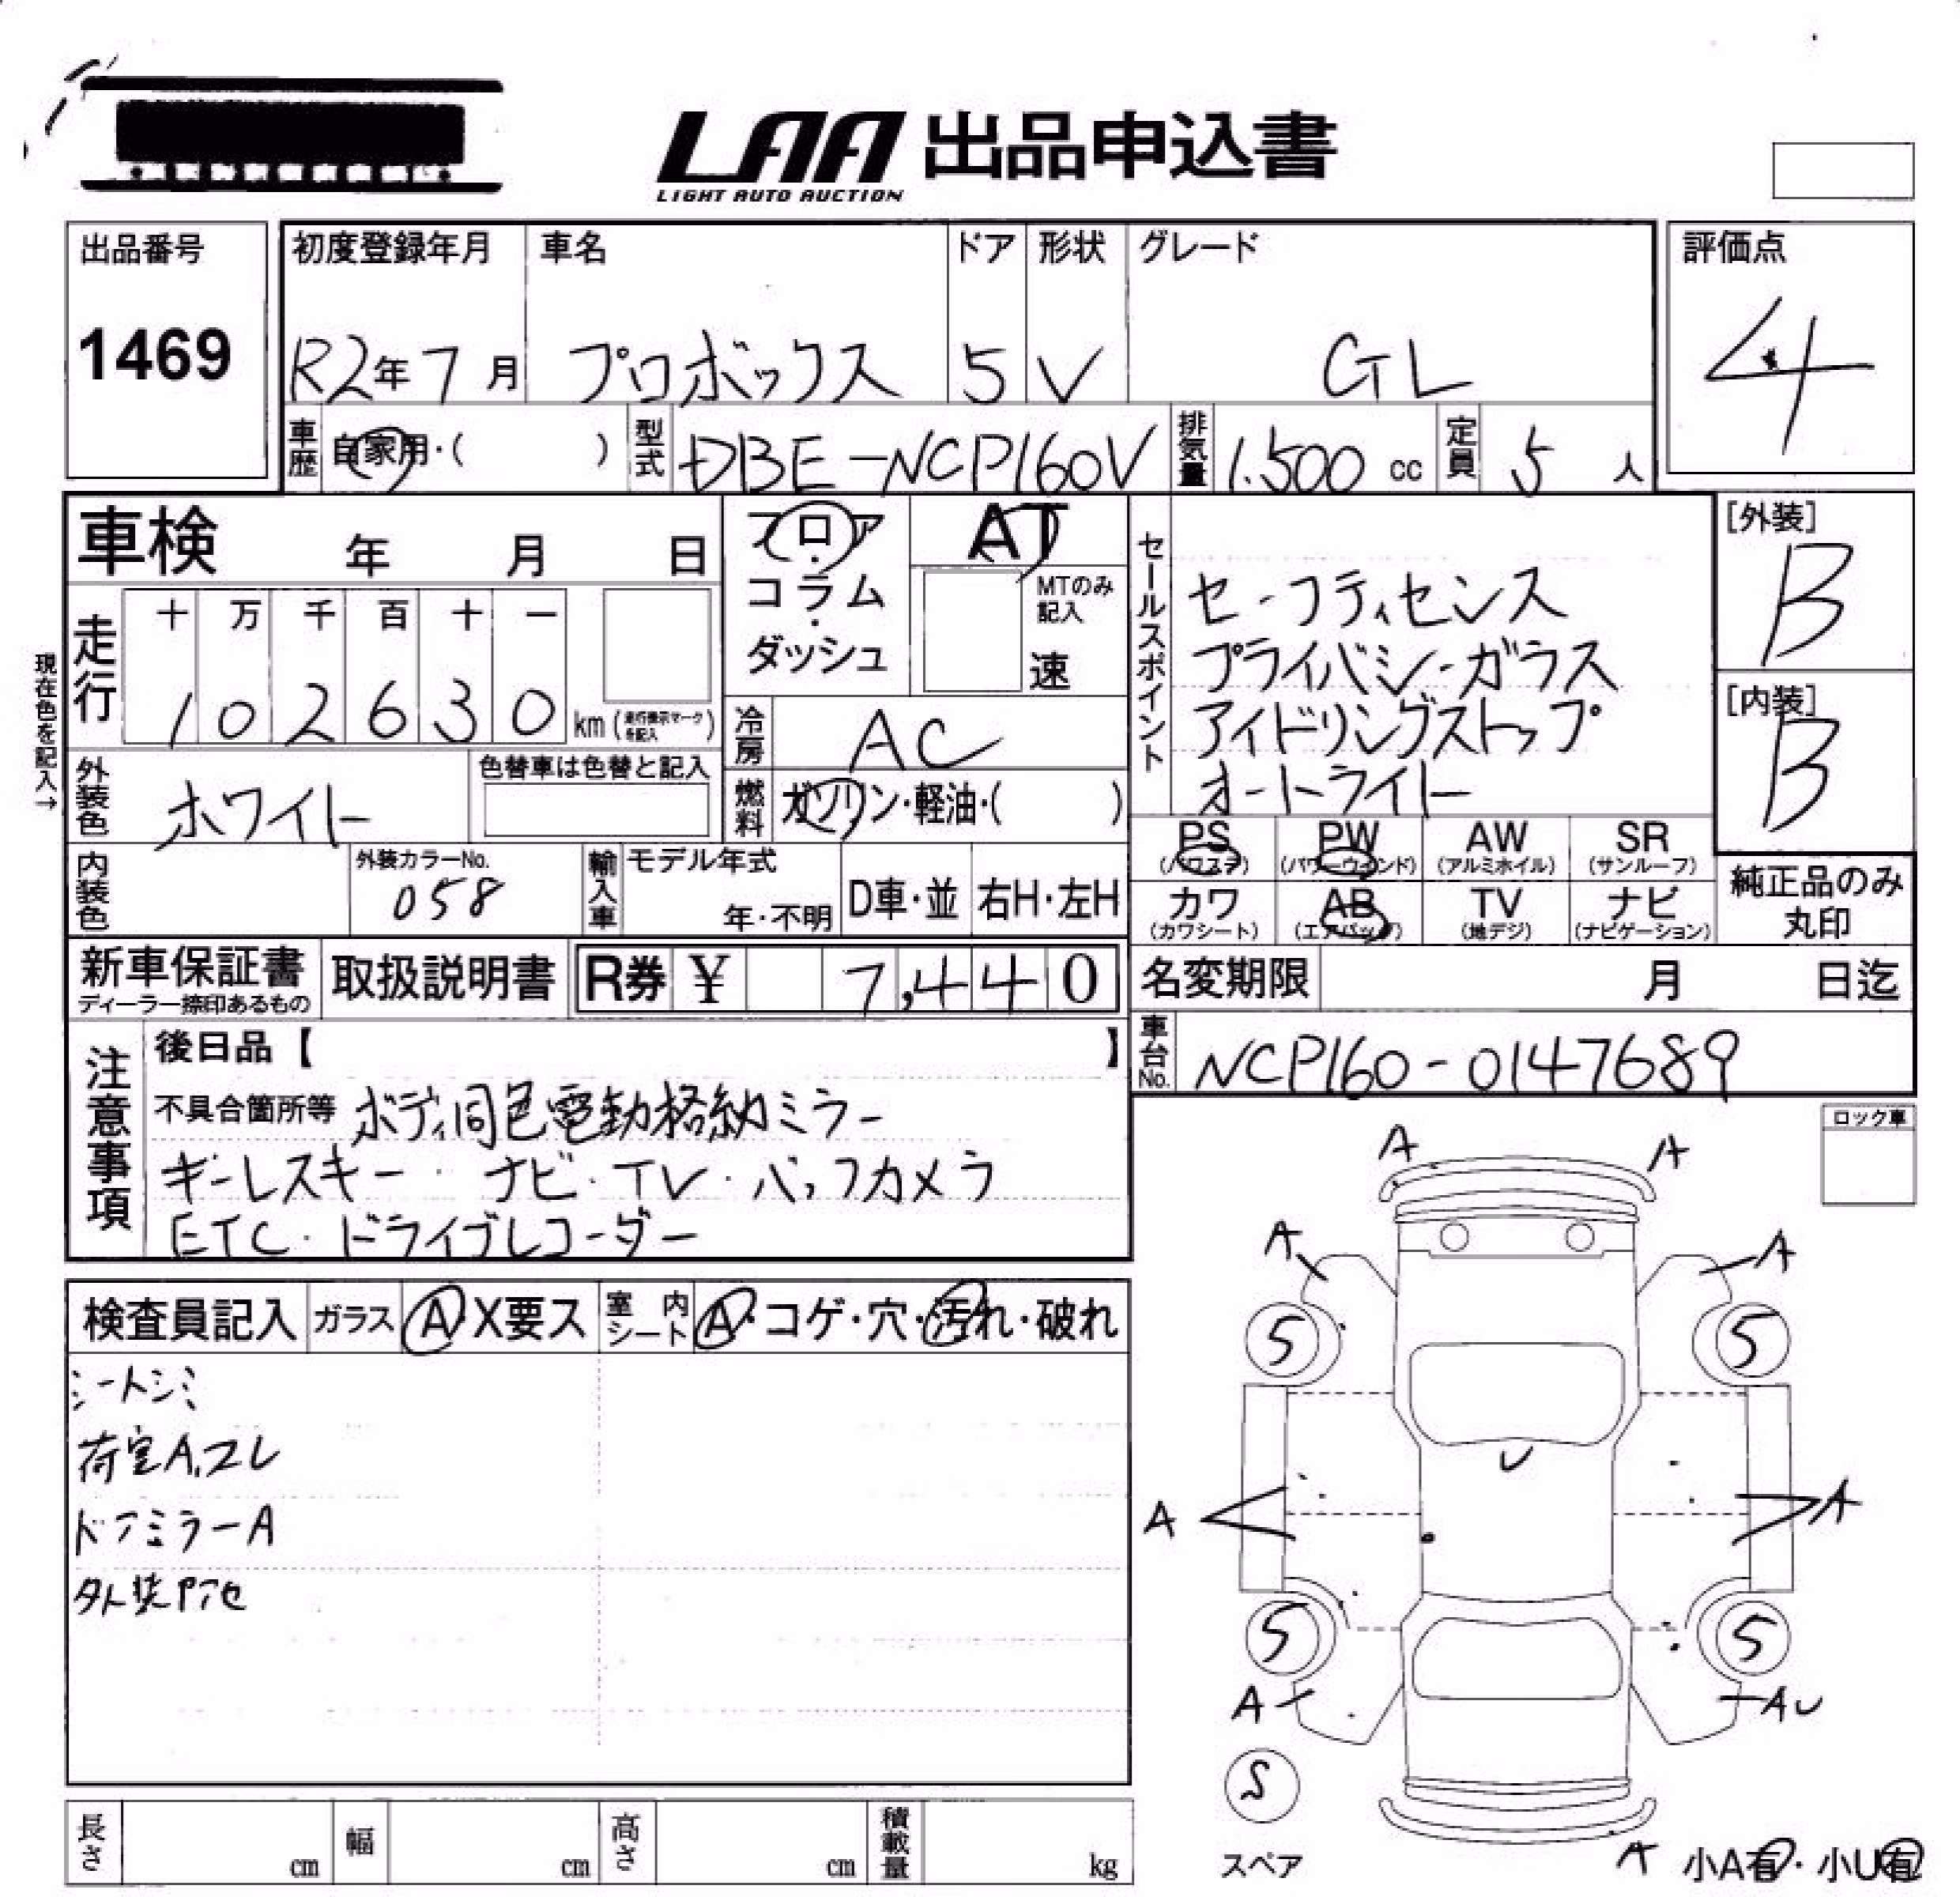 LAA 出品申込書
LIGHT AUTO AUCTION
出品番号
1469
初度登録年月 車名 ドア 形状 グレード
R2年7月 プロボックス 5 V GL
評価点
4
車歴 自家用・( ) 型式 DBE-NCP160V 排気量 1.500 cc 定員 5 人
車検 年 月 日
フロア・コラム・ダッシュ
AT
MTのみ記入
速
現在色を記入→
走行
十 万 千 百 十 一
1 0 2 6 3 0 km (走行表示マークを記入)
冷房 AC
燃料 ガソリン・軽油・( )
外装色 ホワイト
色替車は色替と記入
内装色
外装カラーNo.
058
輸入車 モデル年式
年・不明 D車・並 右H・左H
セールスポイント
セーフティセンス
プライバシーガラス
アイドリングストップ
オートライト
[外装]
B
[内装]
B
PS PW AW SR
(パワステ) (パワーウインド) (アルミホイル) (サンルーフ)
カワ AB TV ナビ
(カワシート) (エアバッグ) (地デジ) (ナビゲーション)
純正品のみ
丸印
新車保証書
ディーラー捺印あるもの
取扱説明書 R券 ¥ 7,440
名変期限 月 日迄
車台No. NCP160-0147689
注意事項
後日品【 】
不具合箇所等 ボディ同色電動格納ミラー
キーレスキー・ナビ・TV・バックカメラ
ETC・ドライブレコーダー
ロック車
検査員記入 ガラス A X要ス 室内シート A・コゲ・穴・汚れ・破れ
シートシミ
荷室A,コレ
ドアミラーA
A A
A A
5 5
U
A A
5 5
A AU
S
スペア
A 小A有・小U有
長さ cm 幅 cm 高さ cm 積載量 kg